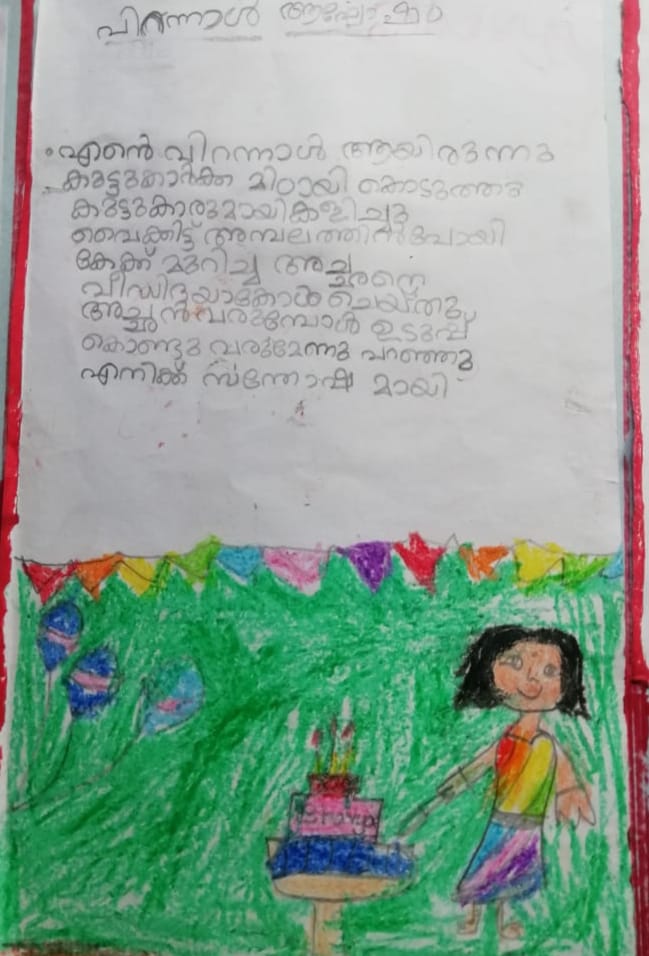 പിറന്നാൾ ആഘോഷം
എൻെ പിറന്നാൾ ആയിരുന്നു
കൂട്ടുകാർക്ക മിഠായി കൊടുത്തു
കൂട്ടുകാരുമായികളിച്ചു
വൈകിട്ട് അമ്പലത്തിൽപോയി
കേക്ക് മുറിച്ച അച്ചനെ
വീഡിയോകോൾ ചെയ്തു
അച്ചൻവരുമ്പോൾ ഉടുപ്പ്
കൊണ്ടു വരുമേന്നു പറഞ്ഞു
എനിക്ക് സന്തോഷ മായി